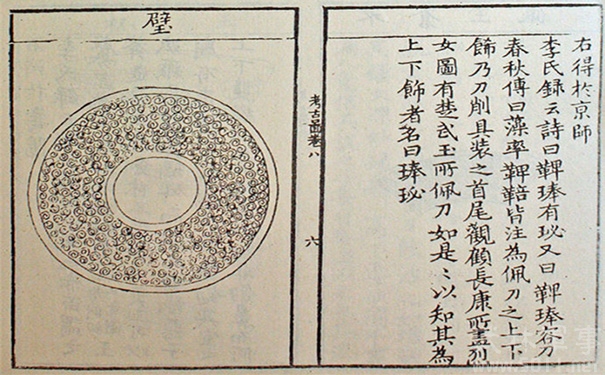 右得於京師
李氏録云詩曰鞞琫有珌又曰鞞琫容刀
春秋傳曰藻率鞞鞛皆注為佩刀之上下
飾乃刀削具裝之首尾觀顧長康所畫列
女圖有楚武王所佩刀如是〻以知其為
上下飾者名曰琫珌
考古啚卷八
六
璧